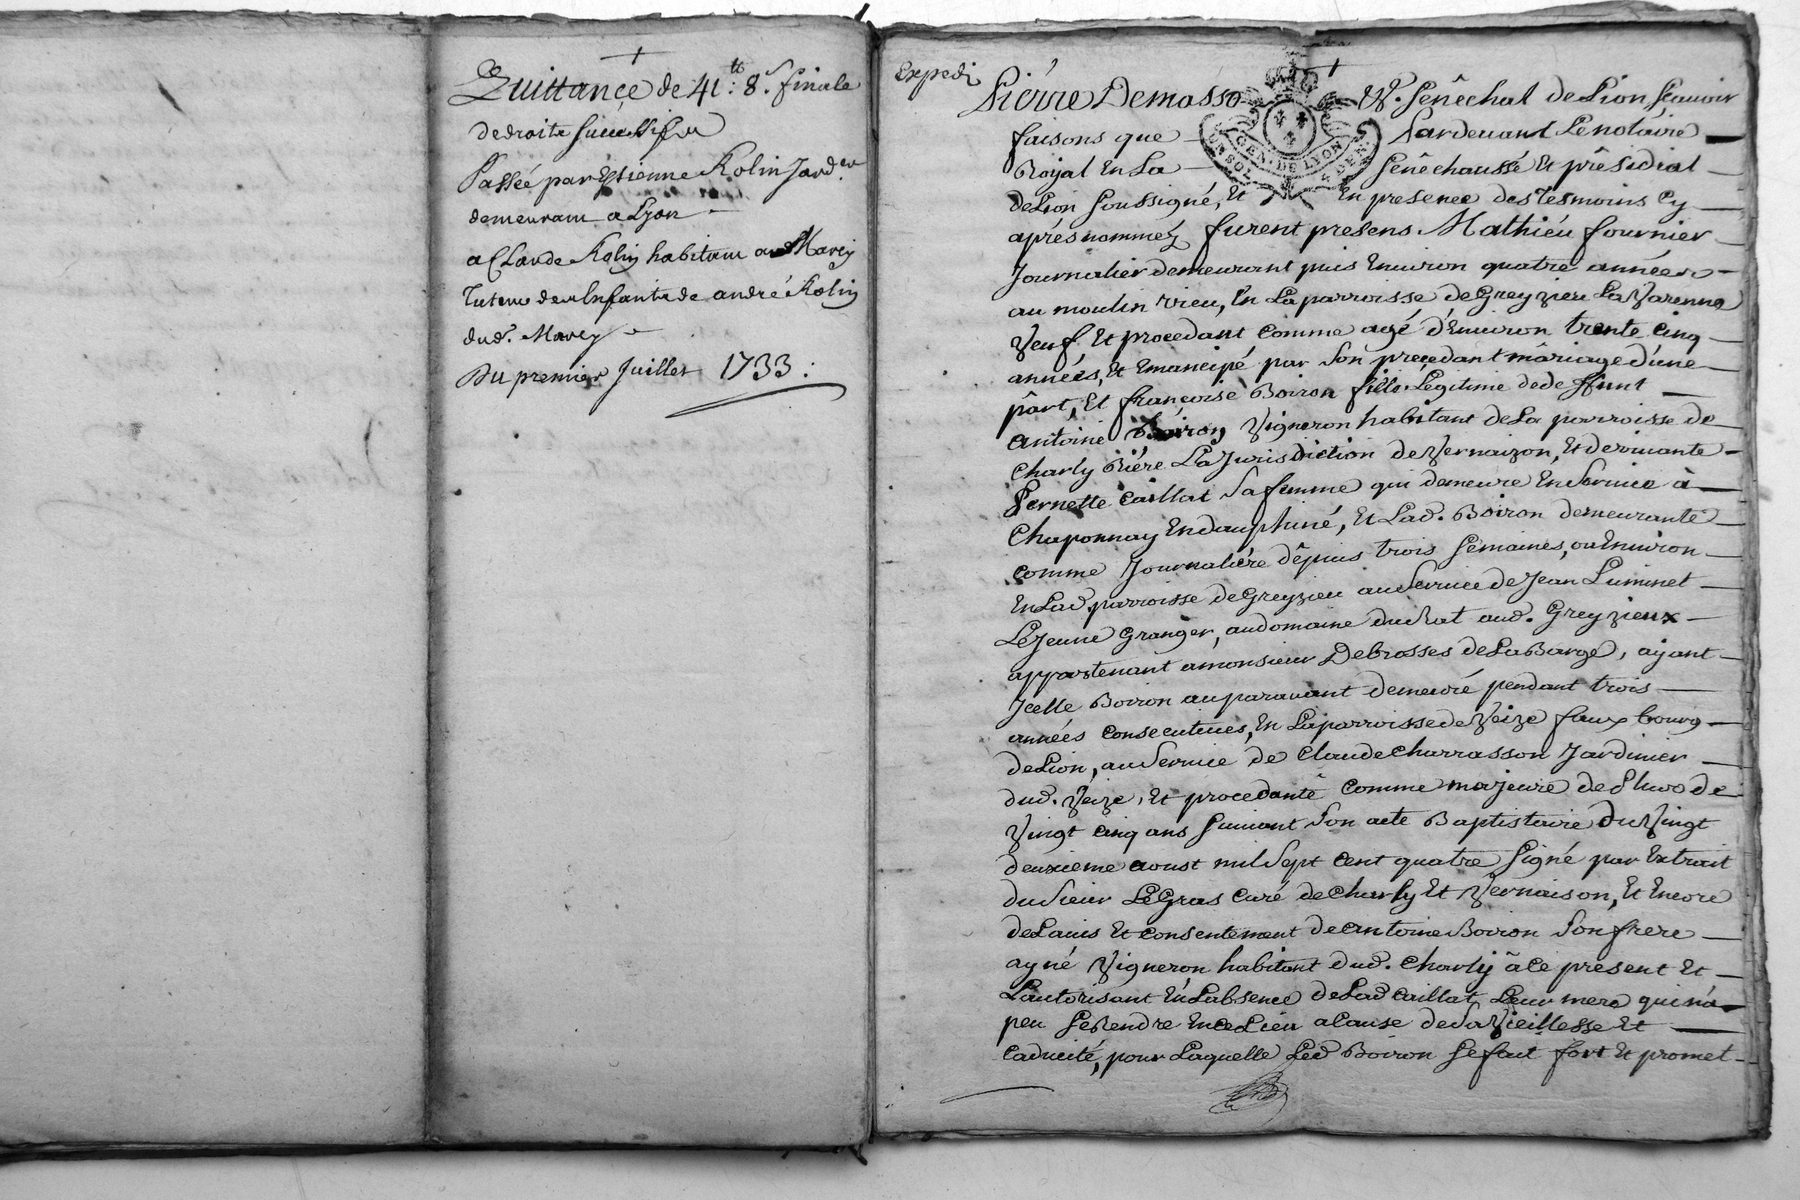 Quittance de 41 tt: 8 s. finale
de droits successifs
Passée par Estienne Rolin Jard.er
demeurant a Lyon
a Claude Rolin habitant aud Marcy
Tuteur des Enfants de andré Rolin
dud. Marcy
Du premier Juillet 1733 :
Expedi
Pierre Demasso
Sénéchal de Lion scavoir
faisons que
Pardevant Le notaire
Royal En La
Sénéchaussé Et présidial
GEN. DE LYON
de Lion soussigné, Et En presence des Tesmoins Cy
après nommez furent presens Mathiéu fournier
Journalier demeurant puis Environ quatre années
au moulin vieu, En La parroisse de Greyzieu La Varenne
Veuf Et procedant comme agé d'Environ trente cinq
années, Et Emancipé par son precedant mâriage d'une
pârt, Et françoise Boiron fille Légitime de deffunt
antoine Boiron Vigneron habitant de La parroisse de
Charly Riére La Jurisdiction de Vernaizon, Et de vivante
Pernette Caillat Sa femme qui demeure En Service à
Chaponnay En dauphiné, Et Lad. Boiron demeurante
comme Journaliére dêpuis trois Semaines, ou Environ
En Lad. parroisse de Greyzieu au Service de Jean Luminet
Le Jeune Granger, au domaine du Rat aud. Greyzieux
appartenant a monsieur Debrosses de La Barge, ayant
Jcelle Boiron auparavant demeuré pendant trois
années consecutives, En La parroisse de Veize faux bourg
de Lion, au Service de Claude Charrasson Jardinier
dud. Veize, Et procedante comme majeure de Plus de
Vingt cinq ans Suivant Son acte Baptistaire du Vingt
deuxieme aoust mil Sept cent quatre Signé par Extrait
du Sieur Le Gras curé de Charly Et Vernaison, Et Encore
de Lavis Et consentement de antoine Boiron Son frere
ayné Vigneron habitant dud. Charly â ce present Et
Lautorisant En Labsence de Lad Caillat Leur mere qui na
peu se Rendre En ce Lieu a Cause de Sa Vieillesse Et
Caducité, pour Laquelle Led Boiron Se fait fort Et promet